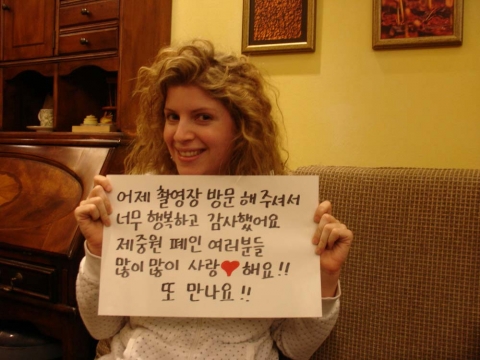 어제 촬영장 방문 해 주셔서
너무 행복하고 감사했어요
제중원 폐인 여러분들
많이 많이 사랑♥해요!!
또 만나요!!